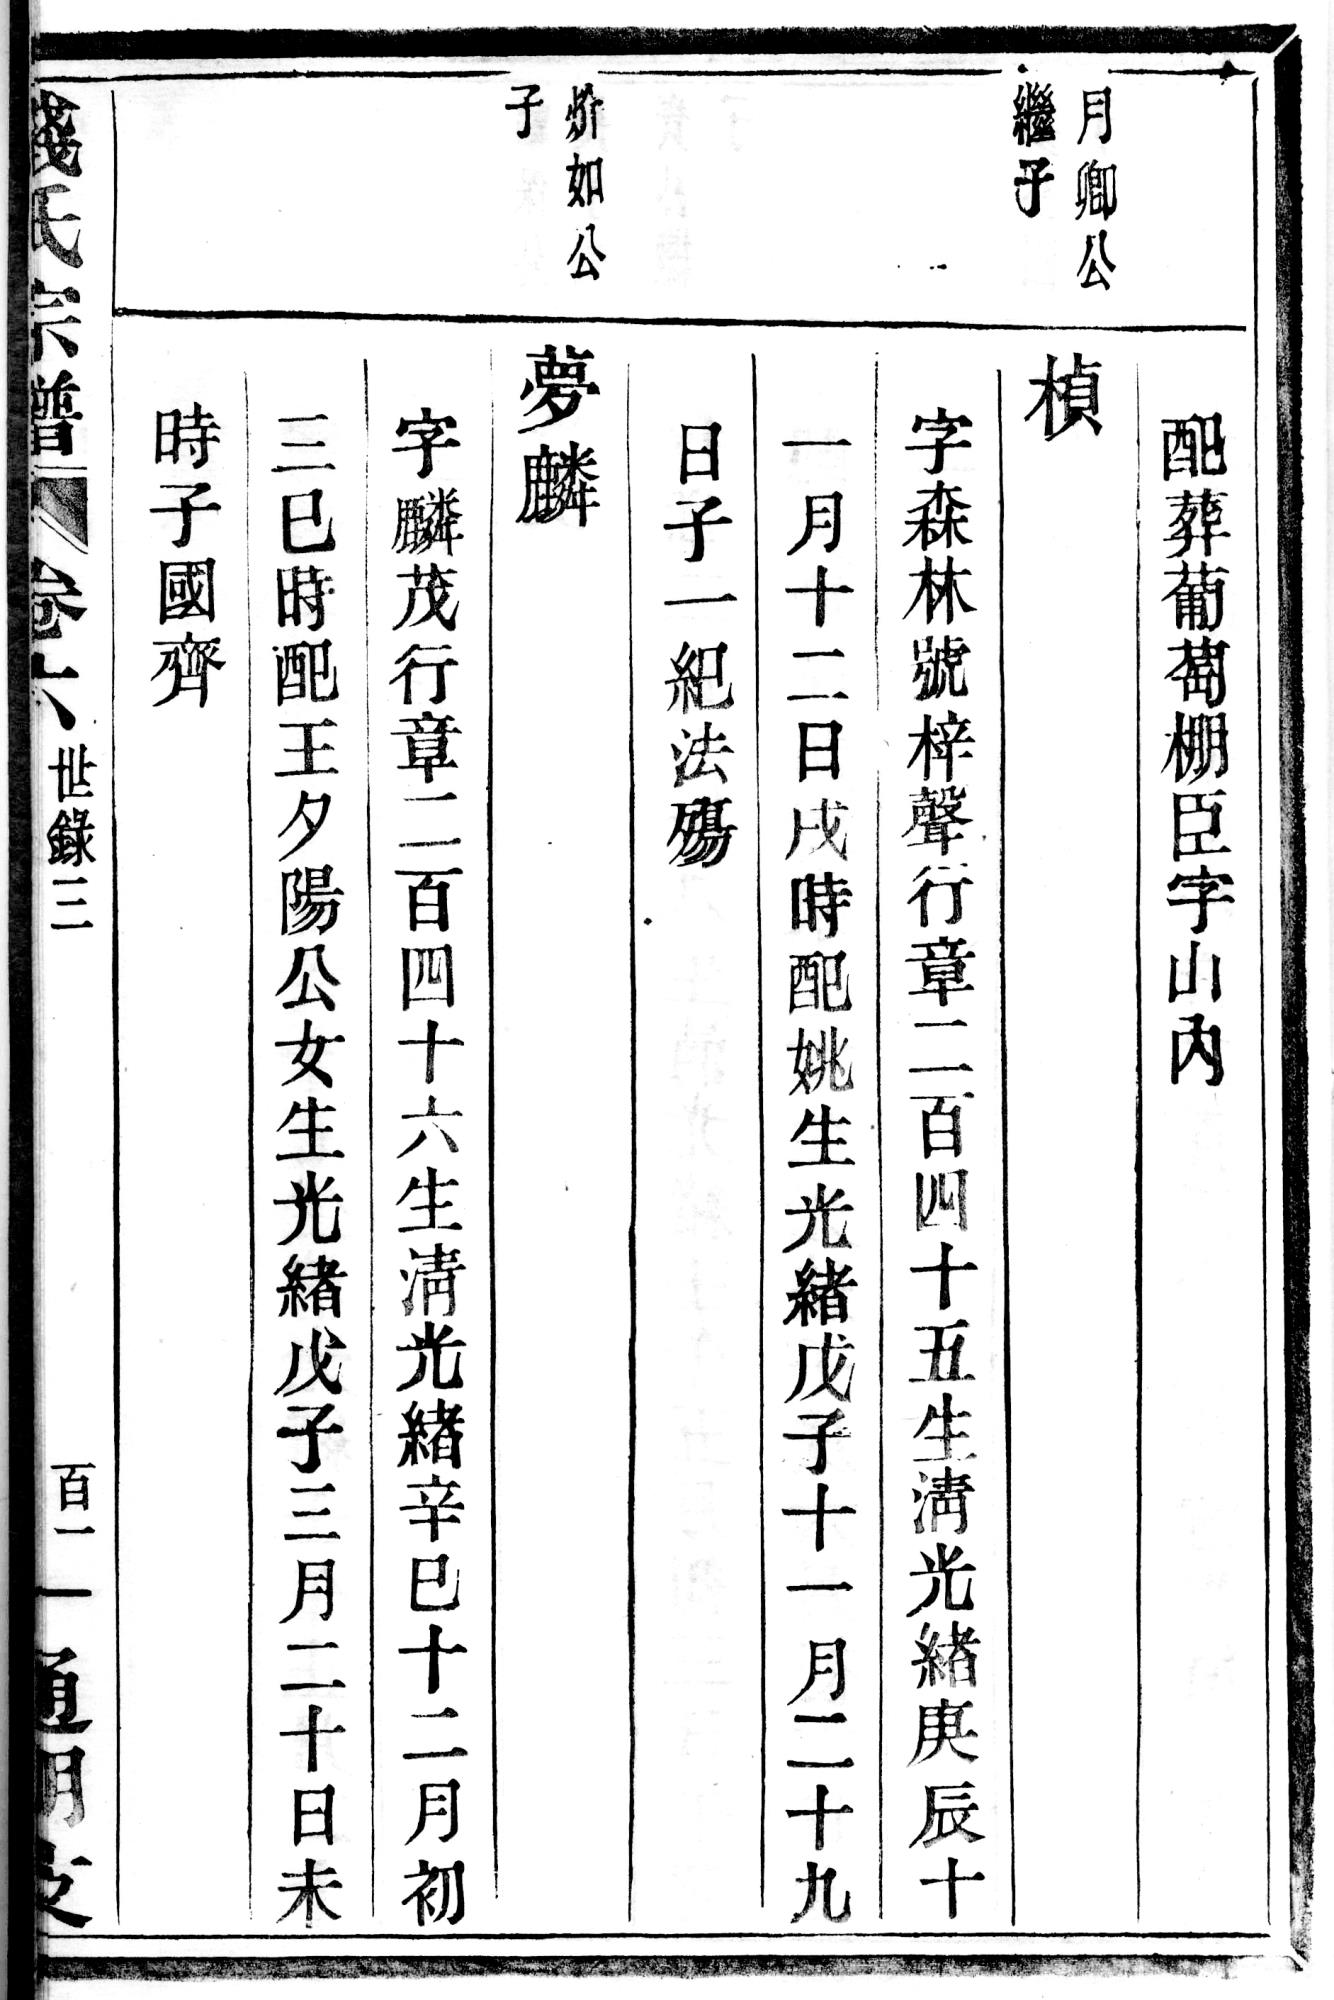 配葬葡萄棚臣字山內
月卿公
繼子
楨
字森林號梓聲行章二百四十五生淸光緒庚辰十
一月十二日戌時配姚生光緒戊子十一月二十九
日子一紀法殤
炌如公
子
夢麟
字麟茂行章二百四十六生淸光緒辛巳十二月初
三巳時配王夕陽公女生光緒戊子三月二十日未
時子國齊
錢氏宗譜 卷六 世錄三 百一 通明支